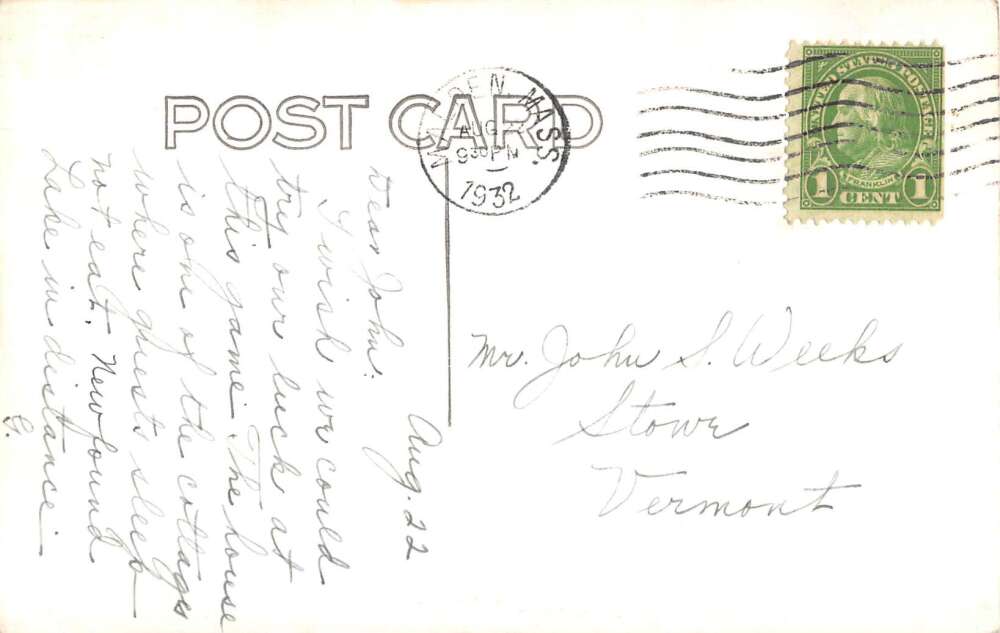 POST CARD
MALDEN, MASS
AUG
9 30 PM
1932
UNITED STATES POSTAGE
FRANKLIN
1 CENT 1
Aug. 22
Dear John:
I wish we could
try our luck at
this game. The house
is one of the cottages
where guests sleep
not eat. Newfound
Lake in distance.
G.
Mr. John S. Weeks
Stowe
Vermont